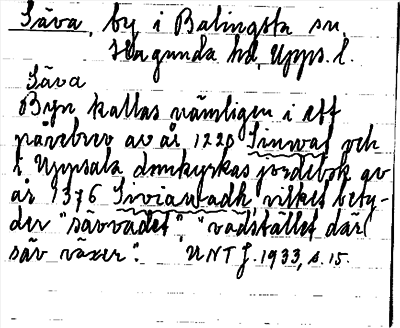 Säva, by i Balingsta sn,
Hagunda hd, Upps. l.
Säva
Byn kallas nämligen i ett
påvebrev av år 1220 Sinwat och
i Uppsala domkyrkas jordebok av
år 1376 Siviawadh, vilket bety-
der "sävvadet", "vadstället där
säv växer".    UNT J. 1933, s. 15.